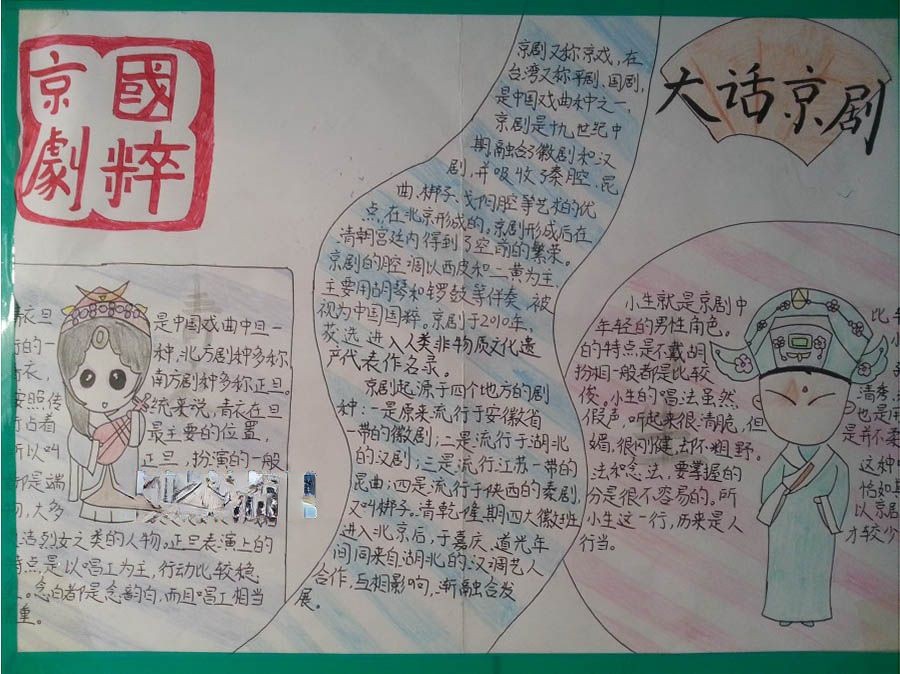 國粹
京劇
大话京剧
京剧又称京戏,在
台湾又称平剧、国剧,
是中国戏曲种之一,
京剧是十九世纪中
期,融合了徽剧和汉
剧,并吸收了秦腔、昆
曲、梆子、弋阳腔等艺术的优
点,在北京形成的。京剧形成后在
清朝宫廷内得到了空前的繁荣。
京剧的腔调以西皮和二黄为主,
主要用胡琴和锣鼓等伴奏,被
视为中国国粹。京剧于2010年,
获选进入人类非物质文化遗
产代表作名录。
京剧起源于四个地方的剧
种:一是原来流行于安徽省
一带的徽剧;二是流行于湖北
的汉剧;三是流行江苏一带的
昆曲;四是流行于陕西的秦剧,
又叫梆子。清乾隆期四大徽班
进入北京后,于嘉庆、道光年
间同来自湖北的汉调艺人
合作,互相影响,渐融合发
展。
青衣旦 是中国戏曲中旦一
行的一 种,北方剧种多称
青衣, 南方剧种多称正旦。
按照传 统来说,青衣在旦
行占着 最主要的位置,
所以叫 正旦,扮演的一般
都是端
物,大多
是贞烈女之类的人物。正旦表演上的
特点是以唱工为主,行动比较稳
。念白都是念韵白,而且唱工相当
重。
小生就是京剧中
年轻的男性角色。
的特点是不戴胡
扮相一般都是比较
俊。小生的唱法虽然
假声,听起来很清脆,但
媚,很刚健,却不粗野。
法和念法,要掌握的
分是很不容易的。所
小生这一行,历来是人
行当。
比
小
清秀
也是用
是并不柔
这种
恰如
以京剧
才较少